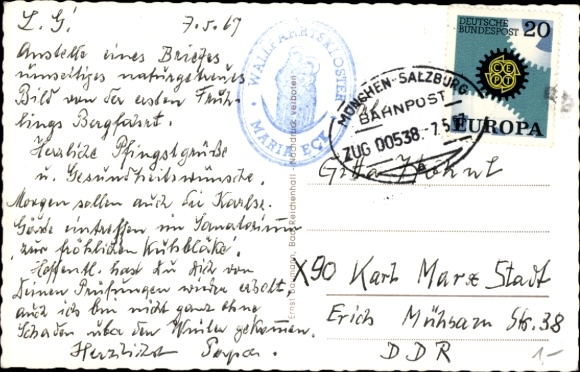 L. G. 7.5.67
Anstelle eines Briefes
umseitiges naturgetreues
Bild von der ersten Früh-
lings Bergfahrt.
Herzliche Pfingstgrüße
u. Gesundheitswünsche.
Morgen sollen auch die Karls.
Gäste eintreffen im Sanatorium
"zur fröhlichen
Hoffentl. hast du dich von
Deinen Prüfungen wieder erholt,
auch ich bin nicht ganz ohne
Schaden über den Winter gekommen.
Herzlichst Papa.
WALLFAHRTSKLOSTER
MARIA ECK
Nachdruck verboten
Bad Reichenhall
MÜNCHEN-SALZBURG
BAHNPOST
ZUG 00538 -7.5.
e
DEUTSCHE
BUNDESPOST 20
CEPT
EUROPA
Gitta Höhnl
X90 Karl Marx Stadt
Erich Mühsam Str. 38
DDR
1,-